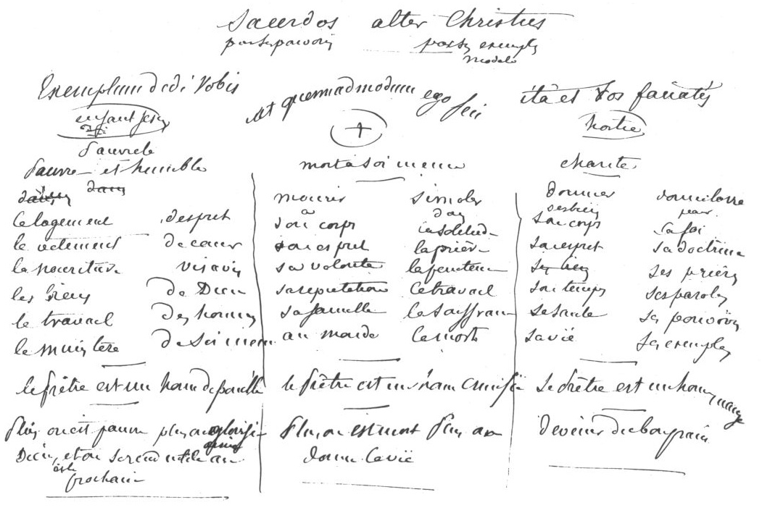 Sacerdos alter Christus
par ses pouvoirs par ses exemples
modele
Exemplum dedi vobis ut quemadmodum ego feci ita et vos faciatis
pauvre et humble
dans
le logement d'esprit
le vêtement de cœur
la nourriture vis à vis
les biens de Dieu
le travail des hommes
le ministère de soi meme
le prêtre est un hom depouillé
Plus on est pauvre plus on glorifie
Dieu et on se rend utile au
prochain
+
mort à soi meme
mourir s'imoler
à dans
son corps la solitude
son esprit la prière
sa volonté la penitence
sa reputation le travail
sa famille la souffrance
au monde la mort
le prêtre est un hom crucifié
Plus on est mort plus on
donne la vie
hostie
charité
donner donner la vie
ses biens par
son corps sa foi
son esprit sa doctrine
ses biens ses prières
son temps ses paroles
sa santé ses pouvoirs
sa vie ses exemples
le prêtre est un hom mangé
devenir du bon pain